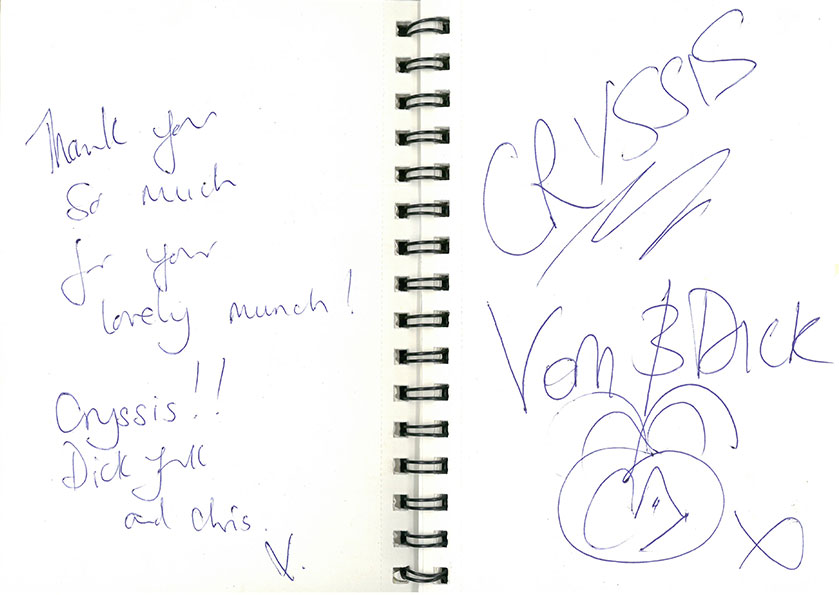 Thank you
So much
for your
lovely munch!
Cryssis!!
Dick
and Chris.
X.
CRYSSIS
Vom & Dick
X